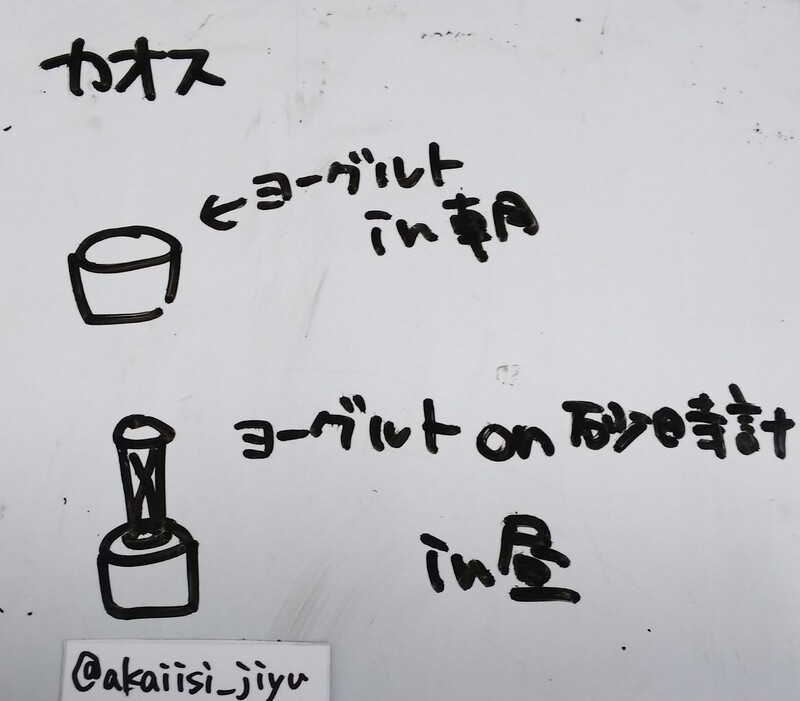 カオス
←ヨーグルト
in朝
ヨーグルト on 砂時計
in昼
@akaiisi_jiyu